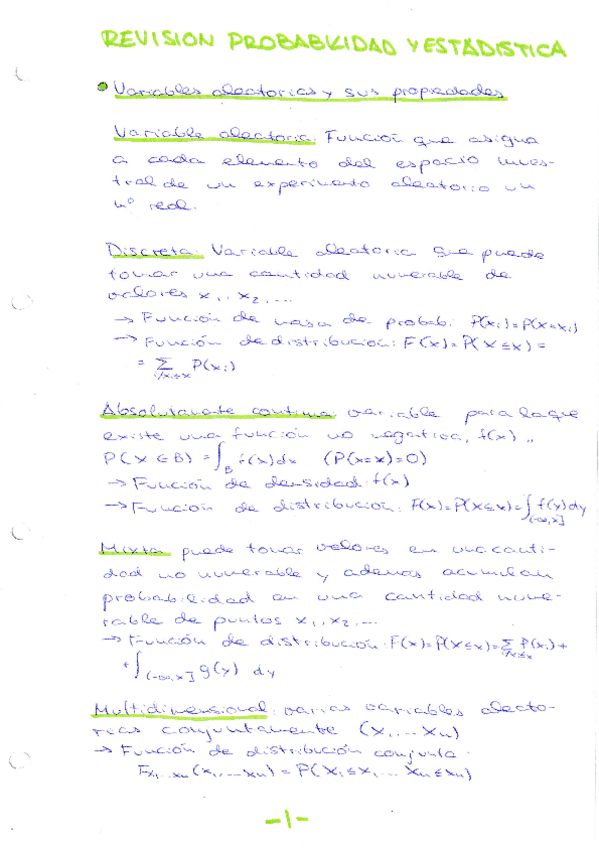 REVISION PROBABILIDAD Y ESTADISTICA
• Variables aleatorias y sus propiedades
Variable aleatoria: Función que asigna
a cada elemento del espacio mues-
tral de un experimento aleatorio un
nº real.
Discreta: Variable aleatoria que puede
tomar una cantidad numerable de
valores x₁, x₂, ...
→ Función de masa de probab: P(xᵢ)=P(X=xᵢ)
→ Función de distribución: F(x)=P(X≤x)=
= Σ_{i/xᵢ≤x} P(xᵢ)
Absolutamente continua: variable para la que
existe una función no negativa, f(x) ,,
P(X∈B) = ∫_B f(x)dx (P(X=x)=0)
→ Función de densidad: f(x)
→ Función de distribución: F(x)=P(X≤x)=∫_{(-∞,x]} f(y)dy
Mixta: puede tomar valores en una canti-
dad no numerable y además acumulan
probabilidad en una cantidad nume-
rable de puntos x₁, x₂, ...
→ Función de distribución: F(x)=P(X≤x)=Σ_{i/xᵢ≤x} P(xᵢ)+
+∫_{(-∞,x]} g(y) dy
Multidimensional: varias variables aleato-
rias conjuntamente (X₁, ... Xₙ)
→ Función de distribución conjunta:
F_{X₁...Xₙ}(x₁, ... xₙ) = P(X₁≤x₁, ... Xₙ≤xₙ)
-1-